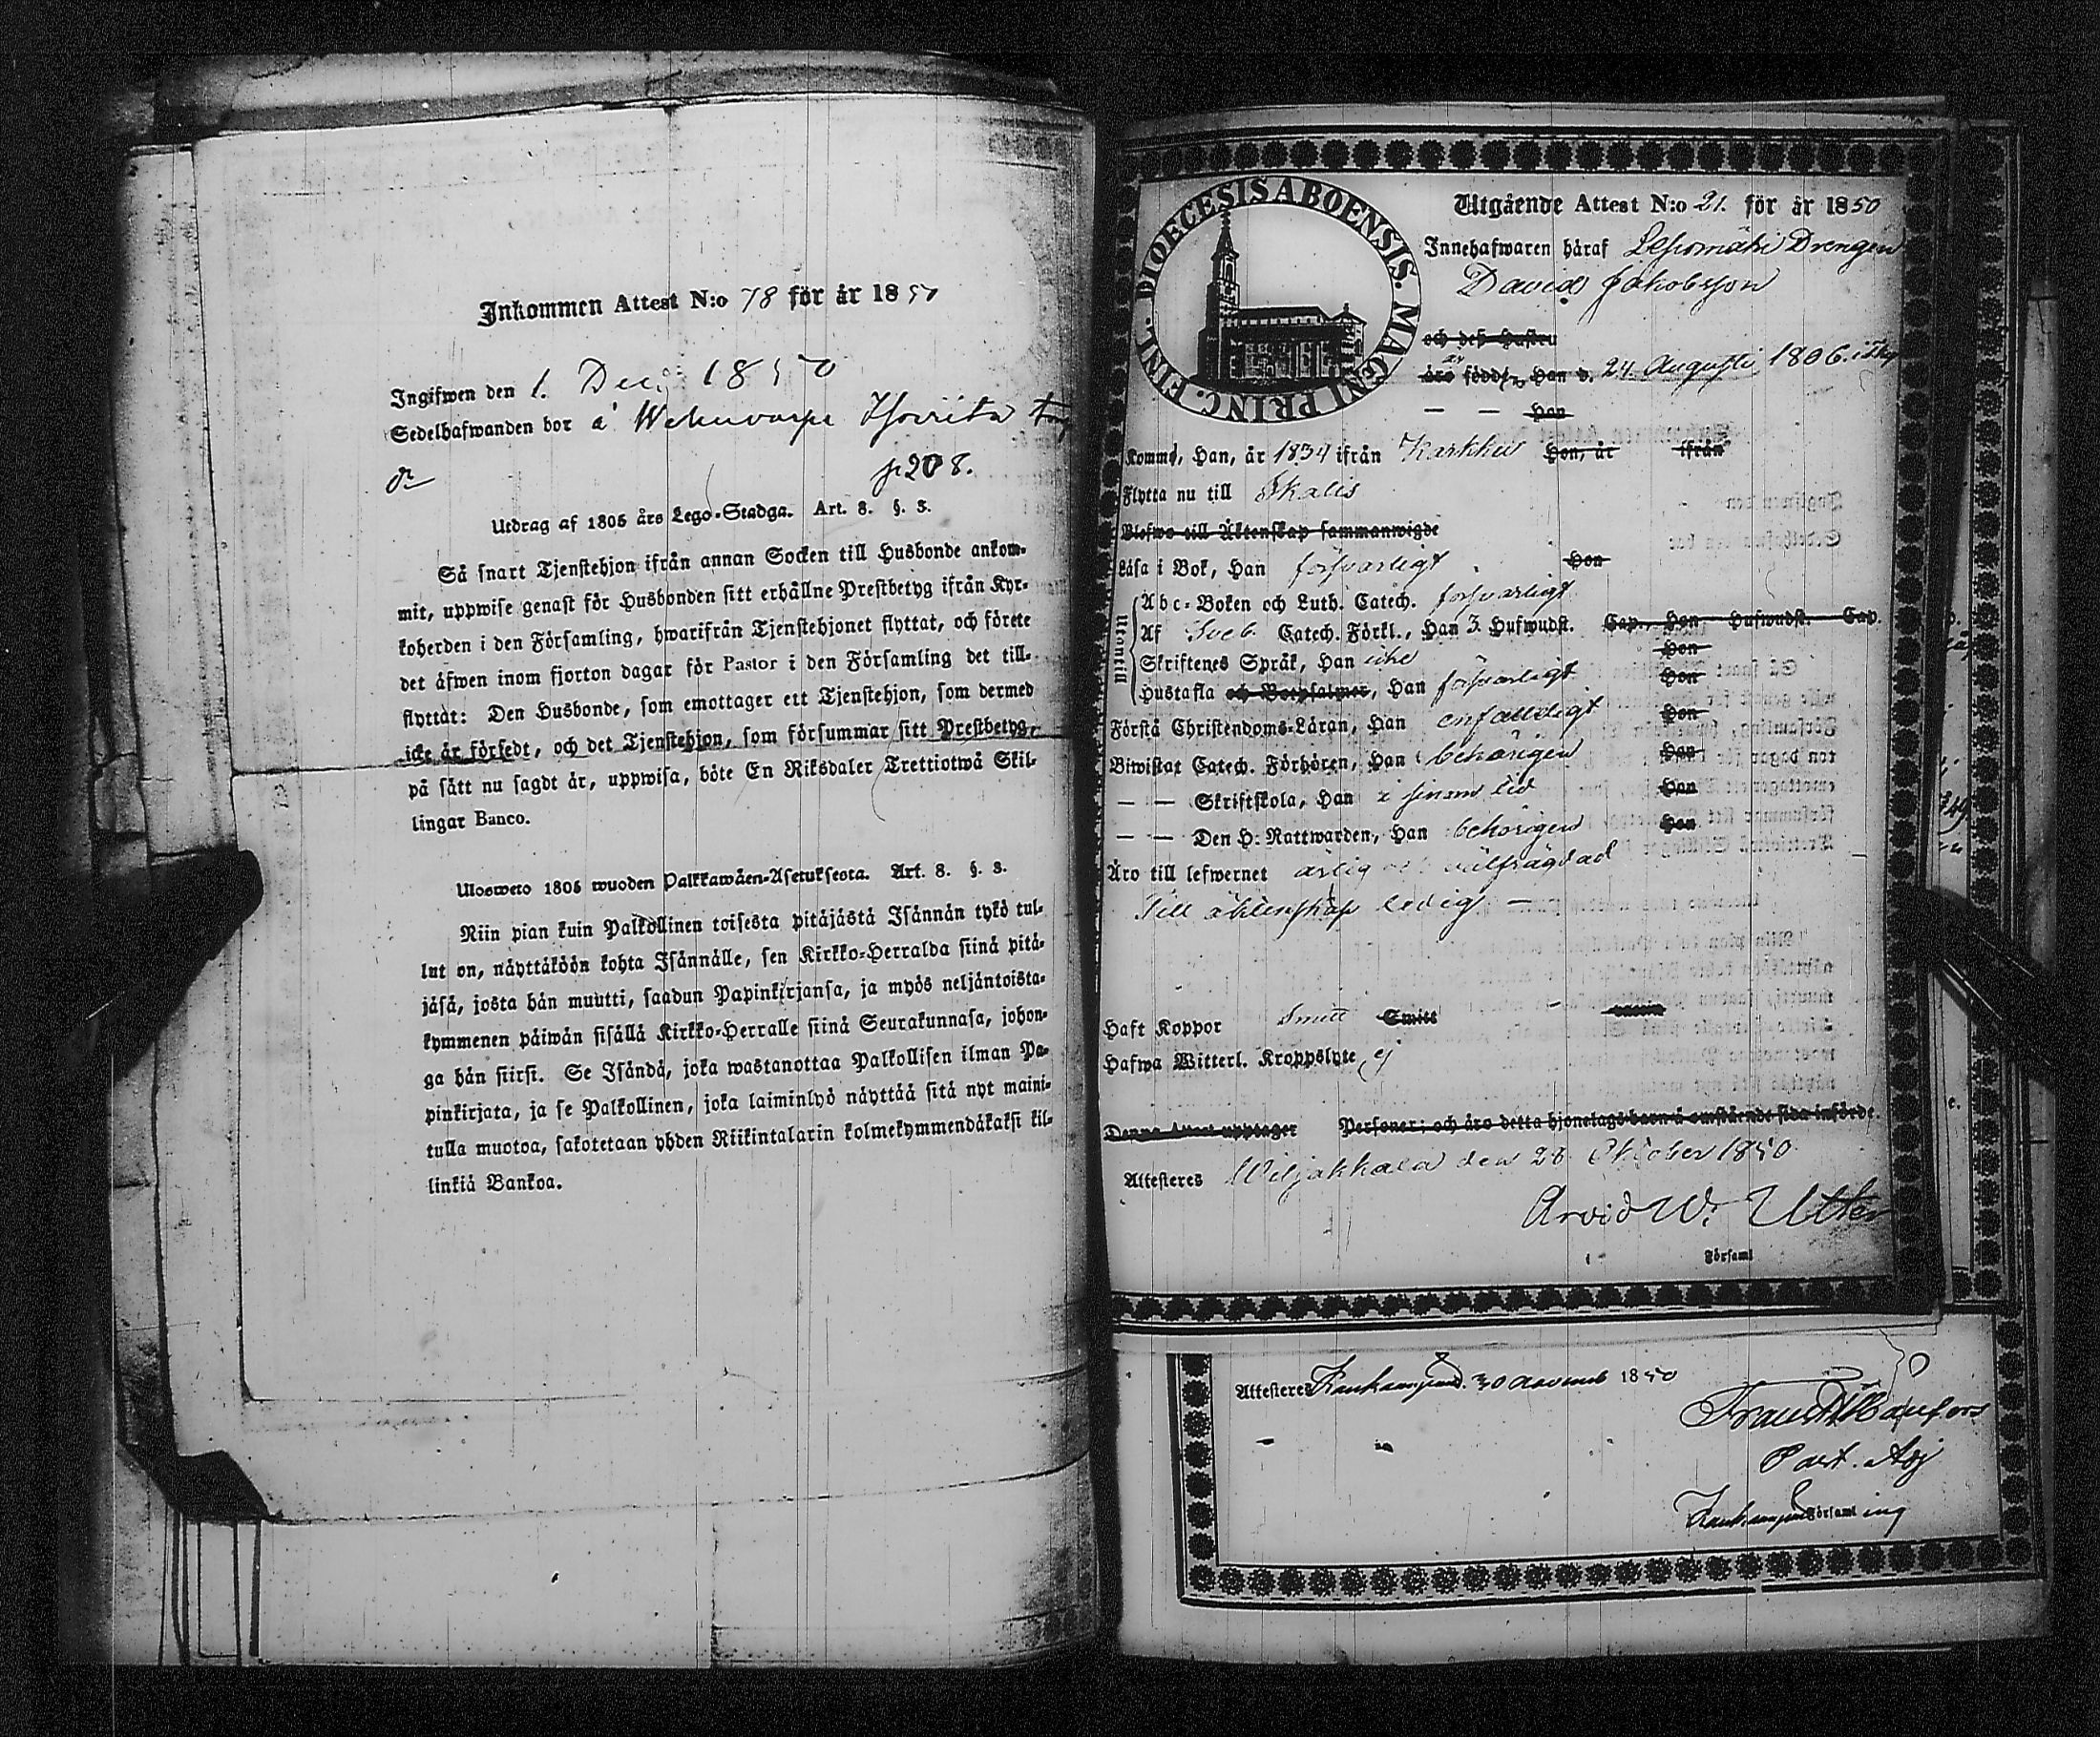 Inkommen Attest N:o 78 för år 1850
Ingifwen den 1. Dec. 1850
Sedelhafwanden bor å
p. 208.
Utdrag af 1805 års Lego-Stadga. Art. 8. §. 3.
Så snart Tjenstehjon ifrån annan Socken till Husbonde ankom-
mit, uppwise genast för Husbonden sitt erhållne Prestbetyg ifrån Kyr-
koherden i den Församling, hwarifrån Tjenstehjonet flyttat, och förete
det äfwen inom fjorton dagar för Pastor i den Församling det till-
flyttat: Den Husbonde, som emottager ett Tjenstehjon, som dermed
icke är försedt, och det Tjenstehjon, som försummar sitt Prestbetyg,
på sätt nu sagdt är, uppwisa, böte En Riksdaler Trettiotwå Skil-
lingar Banco.
Ulosweto 1805 wuoden Palkkawäen-Asetuksesta. Art. 8. §. 3.
Niin pian kuin Palkollinen toisesta pitäjästä Isännän tykö tul-
lut on, näyttäköön kohta Isännälle, sen Kirkko-Herralda siinä pitä-
jäsä, josta hän muutti, saadun Papinkirjansa, ja myös neljäntoista-
kymmenen päiwän sisällä Kirkko-Herralle siinä Seurakunnasa, johon-
ga hän siirsi. Se Isändä, joka wastanottaa Palkollisen ilman Pa-
pinkirjata, ja se Palkollinen, joka laiminlyö näyttää sitä nyt maini-
tulla muotoa, sakotetaan yhden Riikintalarin kolmekymmendäkaksi kil-
linkiä Bankoa.
DIOECESIS ABOENSIS. MAGNI PRINC. FINL.
Utgående Attest N:o 21. för år 1850
Innehafwaren häraf Drengen
David Jakobsson
och deß Hustru
äro födde, Han d. 24 Augusti 1806.
— — Hon
Komme, Han, år 1834 ifrån Karkku Hon, år ifrån
Flytta nu till Ikalis
Blefwo till Äktenskap sammanwigde
Läsa i Bok, Han försvarligt Hon
Utantill
Abc-Boken och Luth. Catech. försvarligt
Af Sveb. Catech. Förkl., Han 3. Hufwudst. Cap., Hon Hufwudst. Cap.
Skriftenes Språk, Han icke Hon
Hustafla och Botpsalmer, Han försvarligt Hon
Förstå Christendoms-Läran, Han enfaldigt Hon
Biwistat Catech. Förhören, Han behörigen Hon
— — Skriftskola, Han i sinom tid Hon
— — Den H. Nattwarden, Han behörigen Hon
Äro till lefwernet ärlig och välfrägdad
Till äktenskap ledig —
Haft Koppor Smitt
Hafwa Witterl. Kroppslyte, ej
Denna Attest upptager Personer; och äro detta hjonelags barn å omstående sida införde.
Attesteres Wiljakkala den 28 Oktober 1850.
Arvid W. Utter
i Församl
Attesteres Kankaanpää d. 30 Novemb 1850
Past. Adj
Kankaanpää Församling